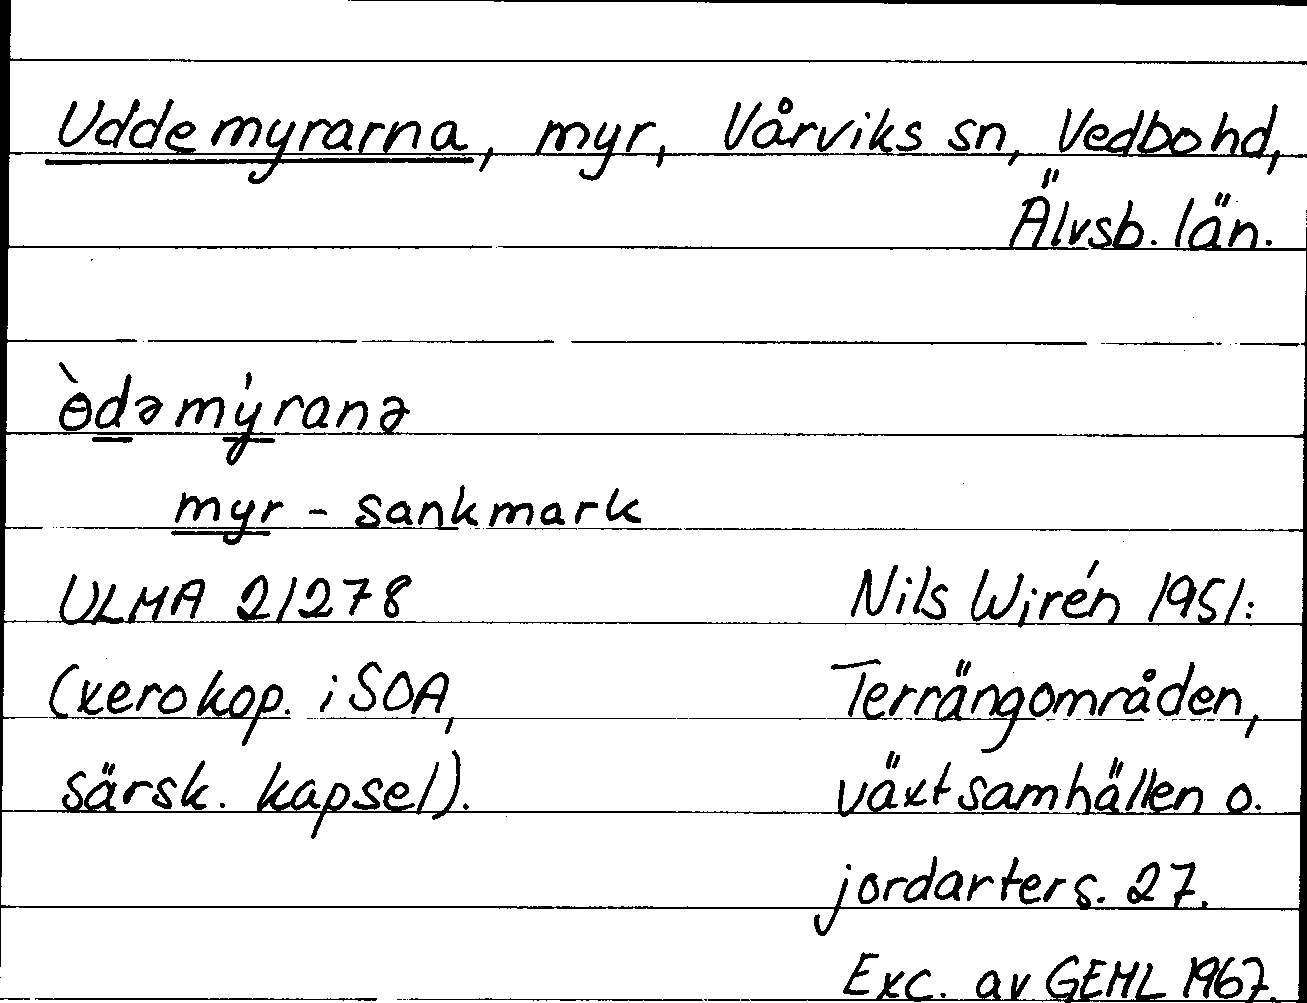 Uddemyrarna, myr, Vårviks sn, Vedbo hd,
Älvsb. län.
ɵ̀dəmýranə
myr - sankmark
ULMA 21278 Nils Wirén 1951:
(xerokop. i SOA, Terrängområden,
särsk. kapsel). växtsamhällen o.
jordarter s. 27.
Exc. av GEHL 1967.